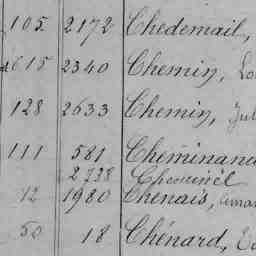 105 2172 Chedemail,
615 2340 Chemin,
128 2633 Chemin, Jul
111 581 Cheminand
2738 Cheminel
12 1980 Chenais, Aman
50 18 Chénard,